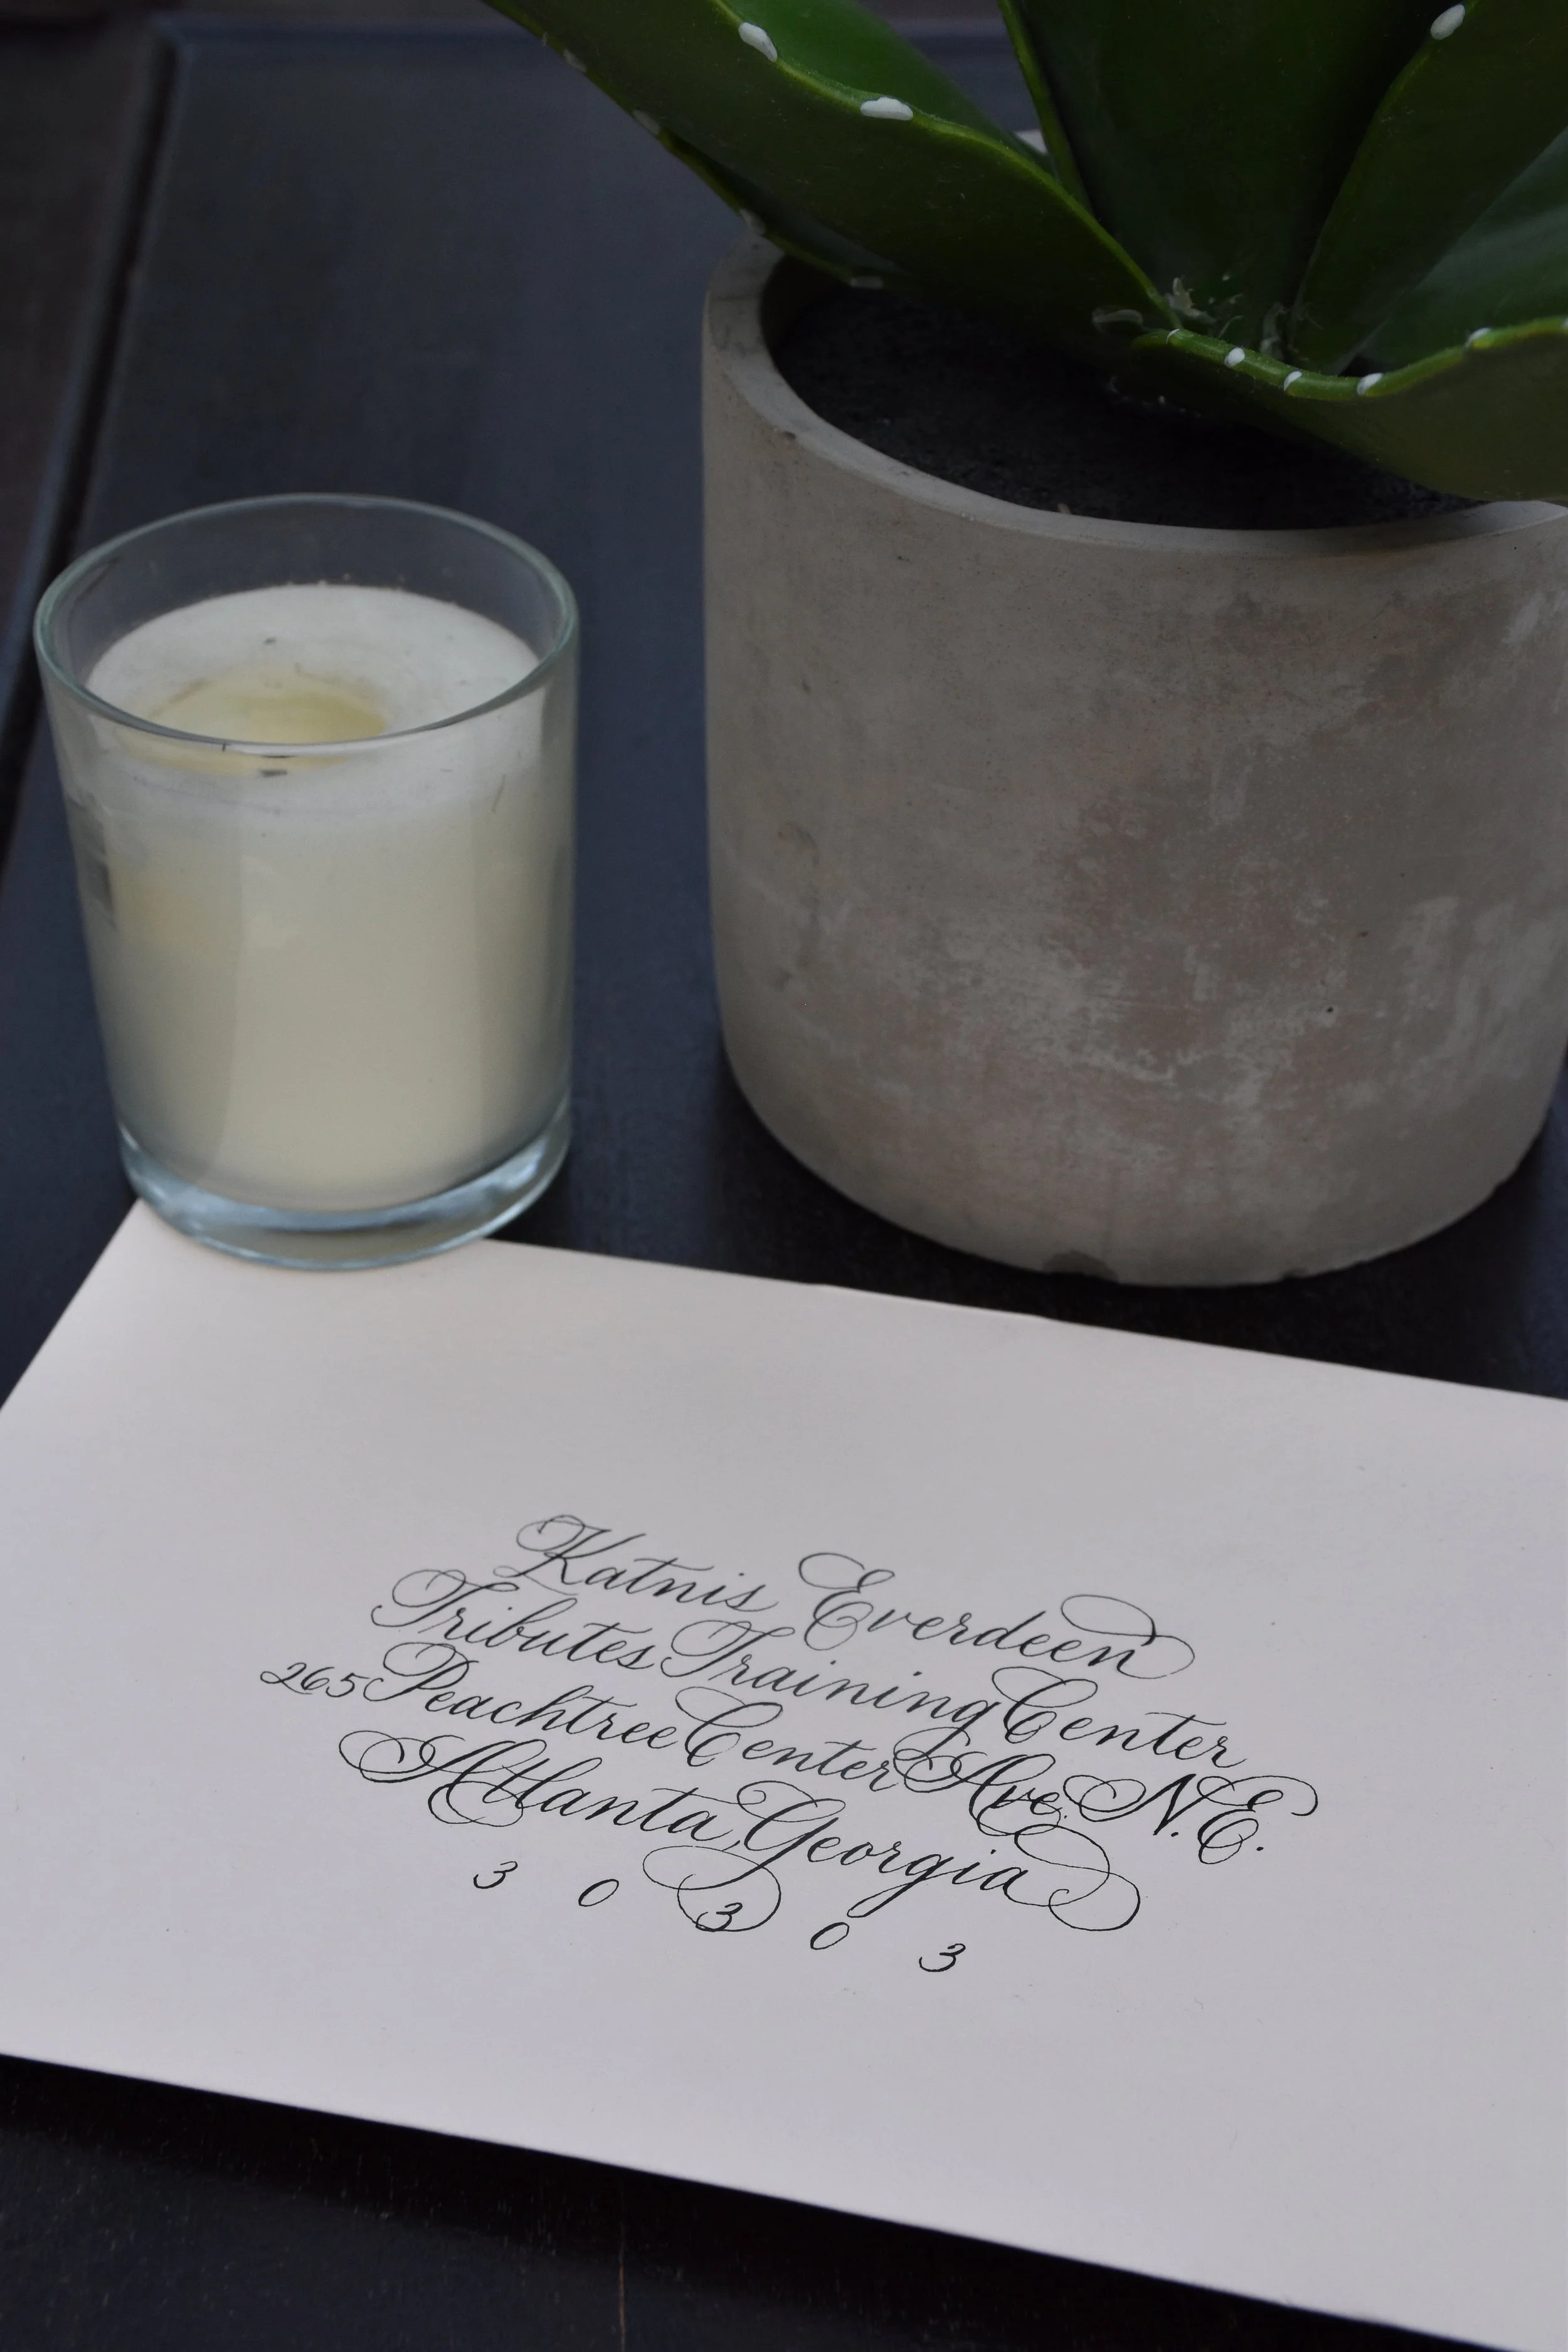 Katnis Everdeen
Tributes Training Center
265 Peachtree Center Ave. N.E.
Atlanta, Georgia
3 0 3 0 3